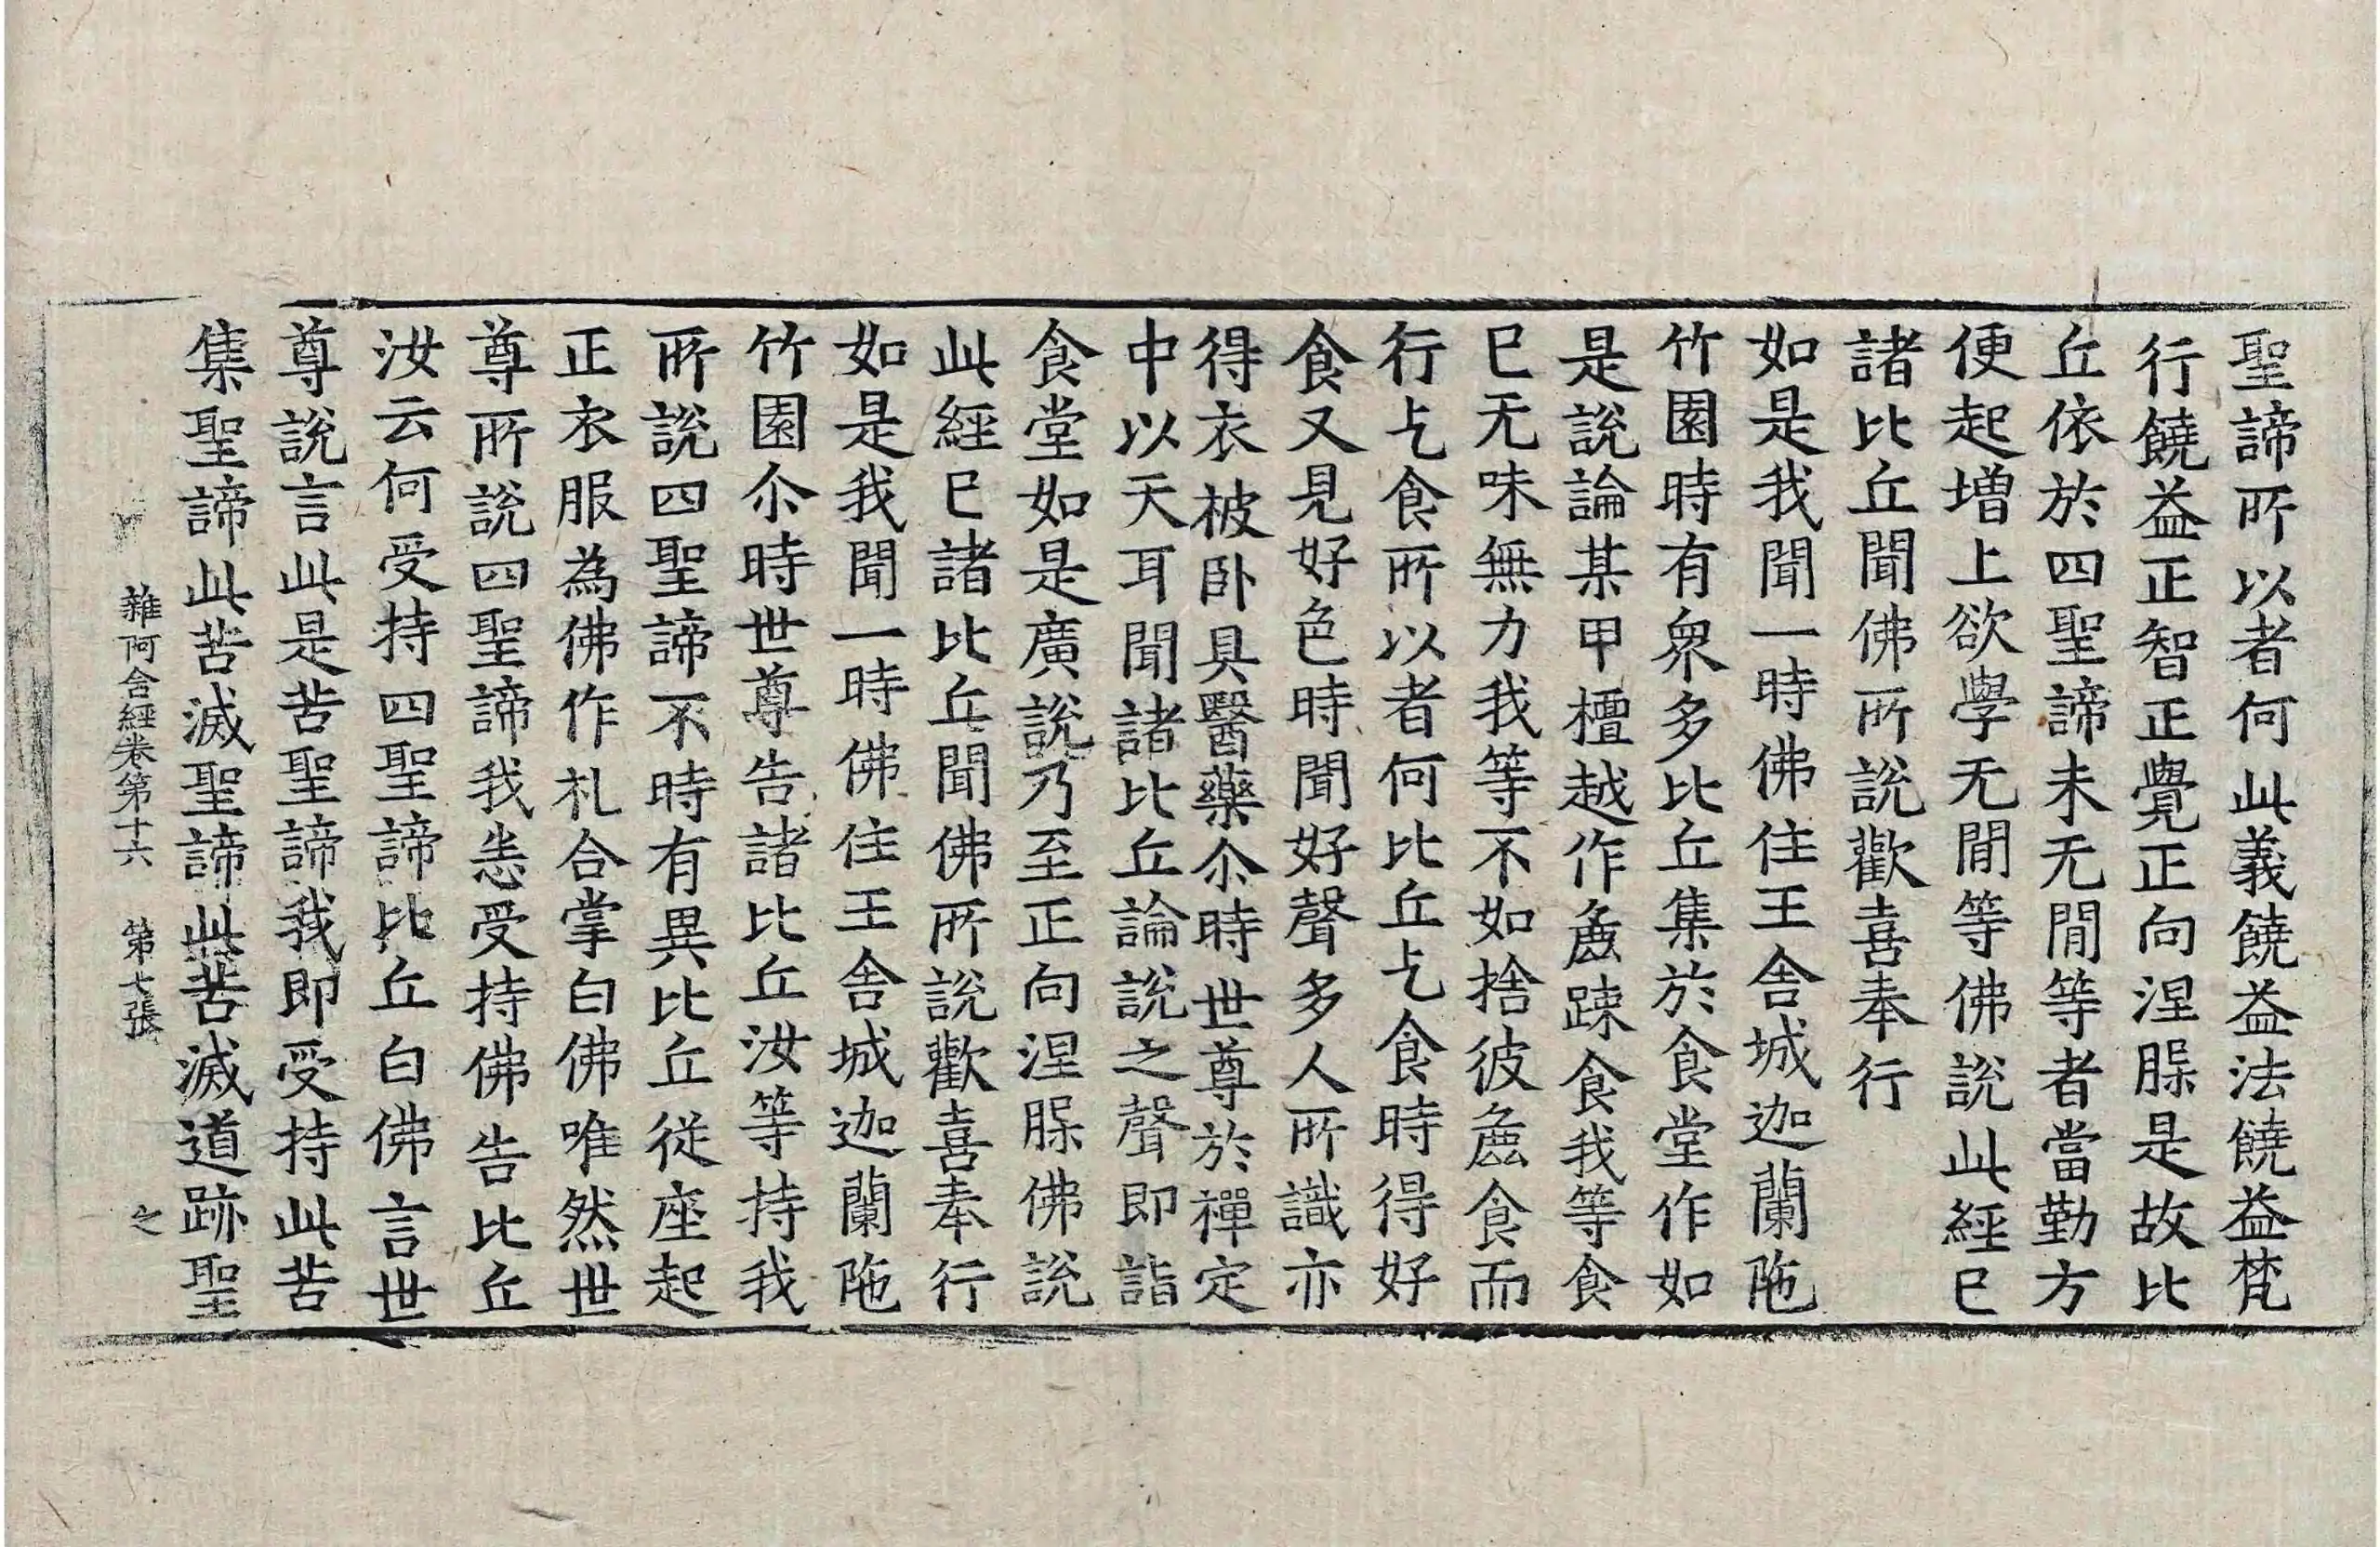 聖諦所以者何此義饒益法饒益梵
行饒益正智正覺正向涅槃是故比
丘依於四聖諦未无閒等者當勤方
便起增上欲學无閒等佛說此經已
諸比丘聞佛所說歡喜奉行
如是我聞一時佛住王舍城迦蘭陁
竹園時有衆多比丘集於食堂作如
是說論某甲檀越作麁踈食我等食
已无味無力我等不如捨彼麁食而
行乞食所以者何比丘乞食時得好
食又見好色時聞好聲多人所識亦
得衣被卧具醫藥尒時世尊於禪定
中以天耳聞諸比丘論說之聲即詣
食堂如是廣說乃至正向涅槃佛說
此經已諸比丘聞佛所說歡喜奉行
如是我聞一時佛住王舍城迦蘭陁
竹園尒時世尊告諸比丘汝等持我
所說四聖諦不時有異比丘從座起
正衣服為佛作礼合掌白佛唯然世
尊所說四聖諦我恙受持佛告比丘
汝云何受持四聖諦比丘白佛言世
尊說言此是苦聖諦我即受持此苦
集聖諦此苦滅聖諦此苦滅道跡聖
雜阿含經卷第十六 第七張 之